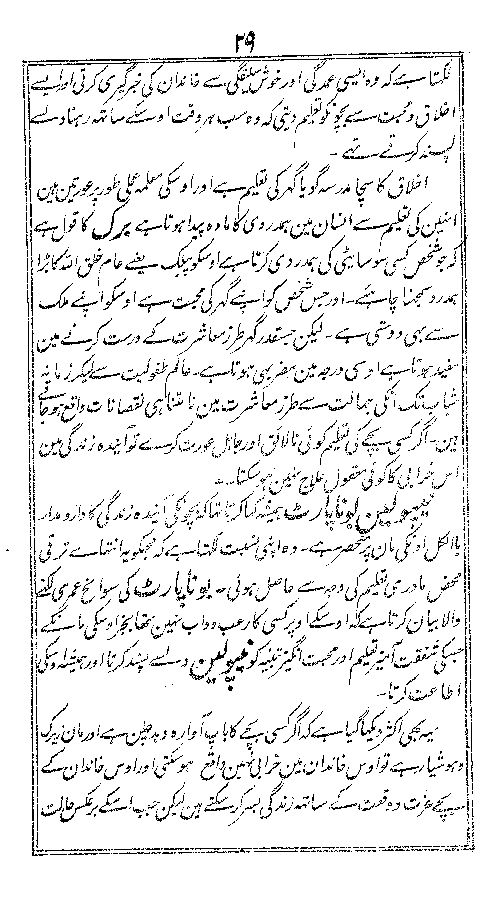 ۲۹
لگتا ہے کہ وہ ایسی عمدگی اور خوش سلیقگی سے خاندان کی خبر گیری کرتی اور ایسے
اخلاق و محبت سے بچونکو تعلیم دیتی کہ وہ سب ہر وقت اوسکے ساتھ رہنا دل سے
پسند کرتے تھے۔
اخلاق کا سچا مدرسہ گویا گھر کی تعلیم ہے اور اوسکی معلمہ عملی طور پر عورتین ہین
انہین کی تعلیم سے انسان مین ہمدردی کا مادہ پیدا ہوتا ہے برک کا قول ہے
کہ جو شخص کسی سوسایٹی کی ہمدردی کرتا ہے اوسکو پبلک یعنے عام خلق اللہ کا بڑا
ہمدرد سمجھنا چاہئے۔ اور جس شخص کو اپنے گھر کی محبت ہے اوسکو اپنے ملک
سے بھی دوستی ہے۔ لیکن جسقدر گھر طرز معاشرت کے درست کرنے مین
مفید ہوتا ہے اوسی درجہ مین مضر بھی ہوتا ہے۔ عالم طفولیت سے لیکر زمانہ
شباب تک انکی جہالت سے طرز معاشرت مین نامتناہی نقصانات واقع ہو جاتے
ہین۔ اگر کسی بچے کی تعلیم کوئی نالائق اور جاہل عورت کرے تو آیندہ زندگی مین
اس خرابی کا کوئی معقول علاج نہین ہو سکتا۔
نیپولین بوناپارٹ ہمیشہ کہا کرتا تھا کہ بچونکی آیندہ زندگی کا دار و مدار
بالکل اونکی مان پر منحصر ہے۔ وہ اپنی نسبت کہتا ہے کہ مجکو یہ انتہائے ترقی
محض مادری تعلیم کی وجہ سے حاصل ہوئی۔ بوناپارٹ کی سوانح عمری لکھنے
والا بیان کرتا ہے کہ اوسکے اوپر کسی کا رعب و داب نہین تھا بجز اوسکی مانکے
جسکی شفقت آمیز تعلیم اور محبت انگیز تنبیہ کو نیپولین دل سے پسند کرتا اور ہمیشہ اوسکی
اطاعت کرتا۔
یہ بھی اکثر دیکھا گیا ہے کہ اگر کسی بچے کا باپ آوارہ و بدچلن ہے اور مان زیرک
و ہوشیار ہے تو اوس خاندان مین خرابی نہین واقع ہو سکتی اور اوس خاندان کے
بچے عزت و وقعت کے ساتھ زندگی بسر کر سکتے ہین لیکن جب اسکے برعکس حالت